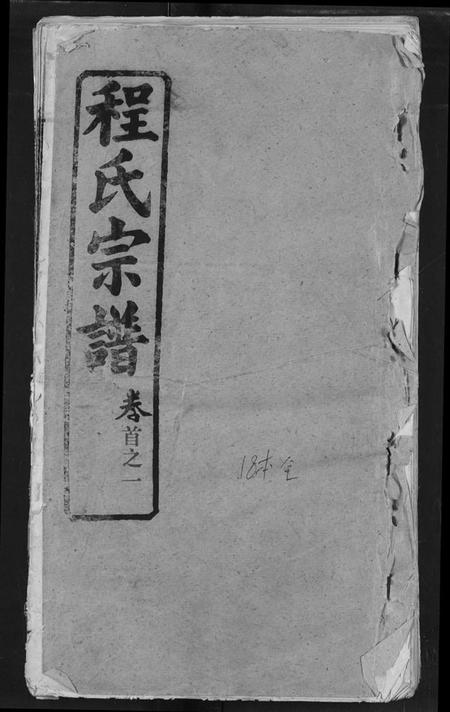 程氏宗譜
卷首之一
18本全